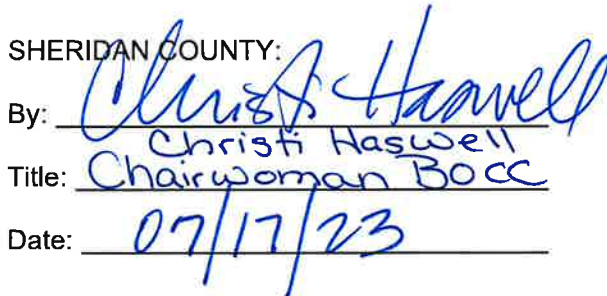 SHERIDAN COUNTY:
By: Christi Haswell
Christi Haswell
Title: Chairwoman BOCC
Date: 07/17/23